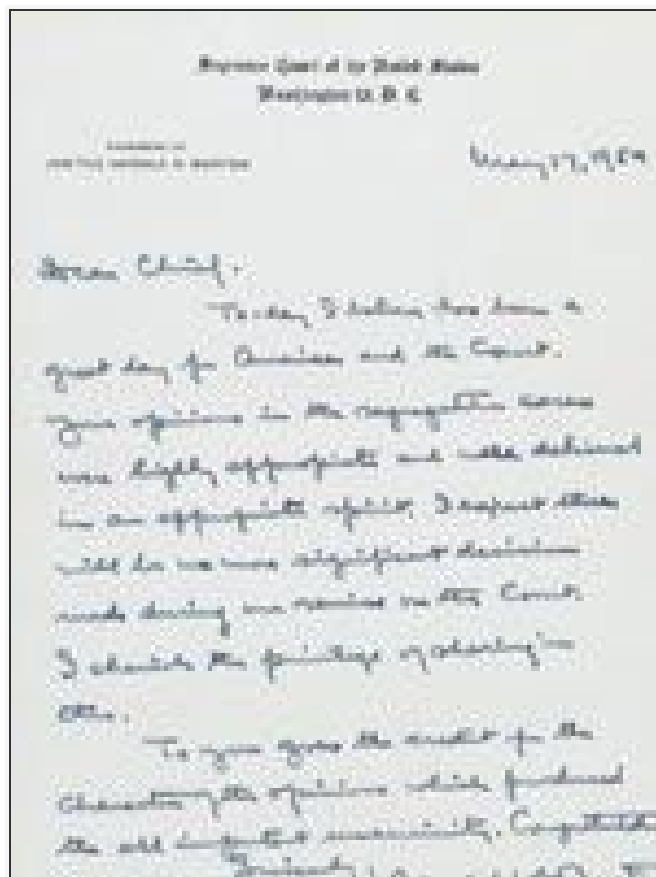 Supreme Court of the United States
Washington D. C.
CHAMBERS OF
JUSTICE HAROLD H. BURTON
May 17, 1954
Dear Chief.
To-day I believe has been a
great day for America and the Court.
Your opinions in the segregation cases
were highly appropriate and were delivered
in an appropriate spirit. I expect there
will be no more significant decisions
made during our service on the Court.
I cherish the privilege of sharing in
this.
To you goes the credit for the
character of the opinions which produced
the all important unanimity.